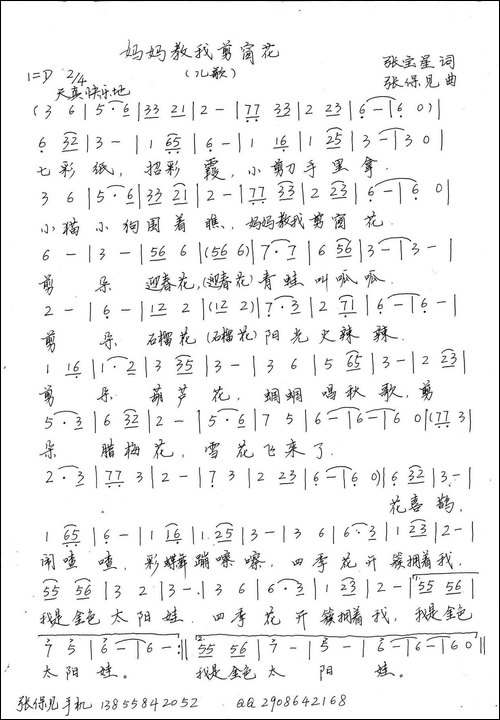 妈妈教我剪窗花
1=D 2/4 (儿歌) 张宝星 词
天真快乐地 张保见 曲
(3 6 | 5·6 | 33 21 | 2 - | 77 33 | 2 23 | 6 - | 6 0) |
6 32 | 3 - | 1 65 | 6 - | 1 16 | 1 25 | 3 - | 3 0 |
七彩纸, 招彩霞, 小剪刀手里拿.
3 6 | 5·6 | 33 21 | 2 - | 77 33 | 2 23 | 6 - | 6 0 |
小猫小狗围着瞧, 妈妈教我剪窗花.
6 - | 3 - | 56 6 | (56 6) | 7·7 | 6 56 | 3 - | 3 - |
剪 朵 迎春花,(迎春花)青蛙叫呱呱.
2 - | 6 - | 12 2 | (12 2) | 7·3 | 2 71 | 6 - | 6 - |
剪 朵 石榴花(石榴花)阳光火辣辣.
1 16 | 1·2 | 3 35 | 3 - | 3 6 | 5 65 | 3 - | 2 23 |
剪 朵 葫芦花, 蝈蝈唱秋歌, 剪
5·3 | 6 32 | 2 - | 5·6 | 7 5 | 6 - | 6 - | 6 0 | (77 3 |
朵 腊梅花, 雪花飞来了.
2·3 | 77 3 | 2 - | 7 3 | 2 23 | 6 - | 6 0) | 6 32 | 3 - |
花喜鹊,
1 65 | 6 - | 1 16 | 1 25 | 3 - | 3 6 | 6·3 | 1 23 | 2 - |
闹喳喳, 彩蝶舞蹦嚓嚓, 四季花开簇拥着我,
55 56 | 3 2 | 3 - | 3 6 | 6·3 | 1 23 | 2 - | 1. 55 56 |
我是金色太阳娃. 四季花开簇拥着我, 我是金色
7 5 | 6 - | 6 - :‖ 2. 55 56 | 7 - | 5 - | 6 - | 6 - | 6 0 ‖
太阳娃。 我是金色太 阳 娃。
张保见手机 13855842052 QQ 2908642168